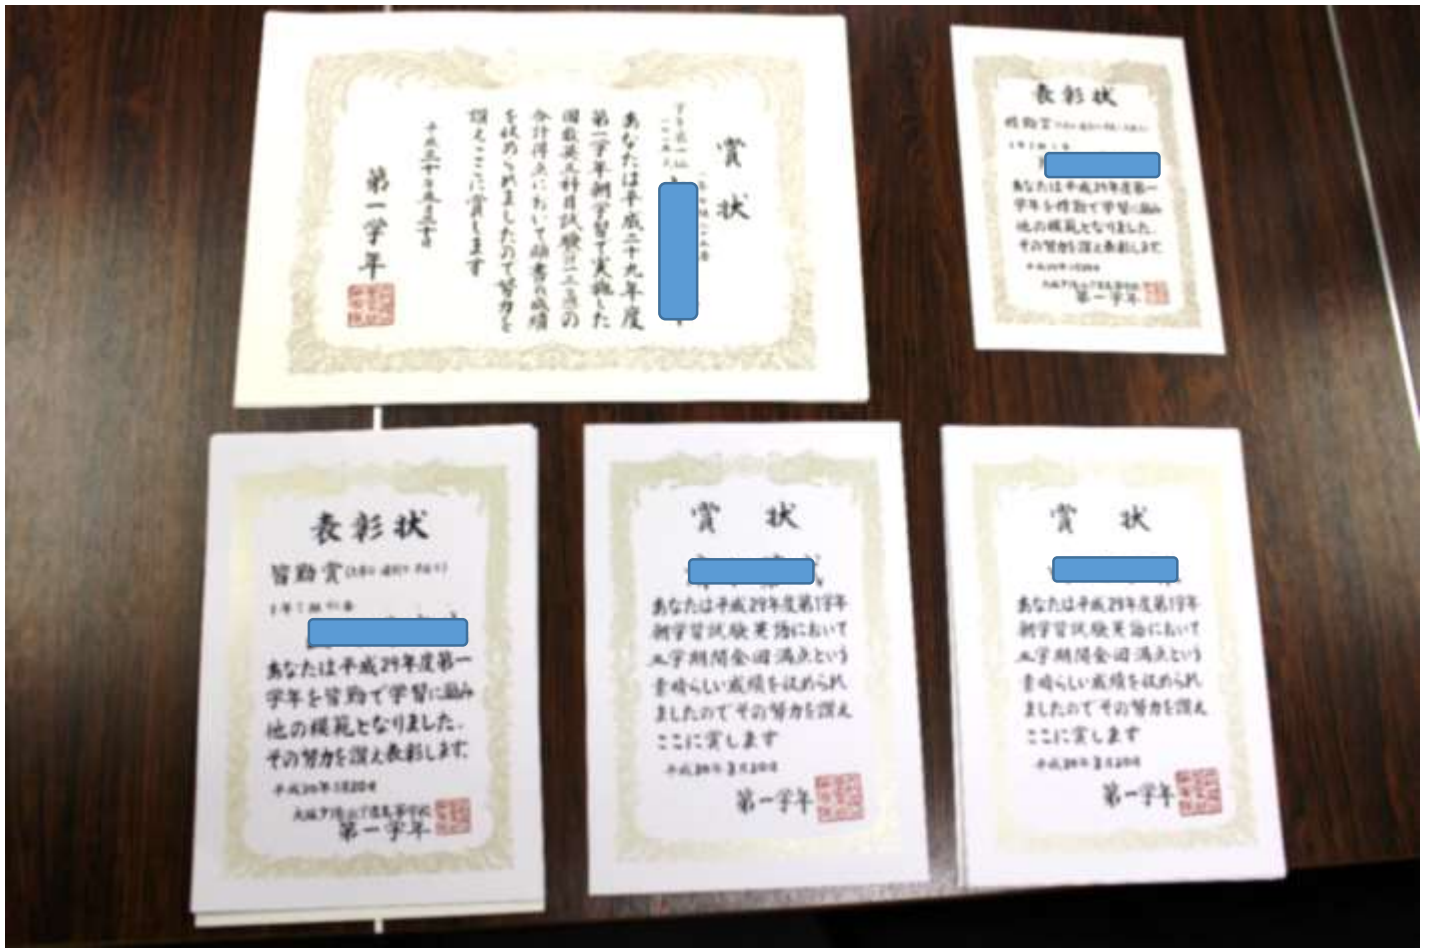 賞状
あなたは平成二十九年度
第一学年朝学習で実施した
国数英三科目試験
合計得点において
を収められましたので努力を
讃えここに賞します
平成三十年三月二十日
第一学年
表彰状
精勤賞
あなたは平成29年度第一
学年を精勤で学習に励み
他の模範となりました。
その努力を讃え表彰します。
平成30年3月20日
第一学年
表彰状
皆勤賞
あなたは平成29年度第一
学年を皆勤で学習に励み
他の模範となりました。
その努力を讃え表彰します。
平成30年3月20日
第一学年
賞状
あなたは平成29年度第1学年
朝学習試験英語において
全回満点という
素晴らしい成績を収められ
ましたのでその努力を讃え
ここに賞します
平成30年3月20日
第一学年
賞状
あなたは平成29年度第1学年
朝学習試験英語において
全回満点という
素晴らしい成績を収められ
ましたのでその努力を讃え
ここに賞します
平成30年3月20日
第一学年